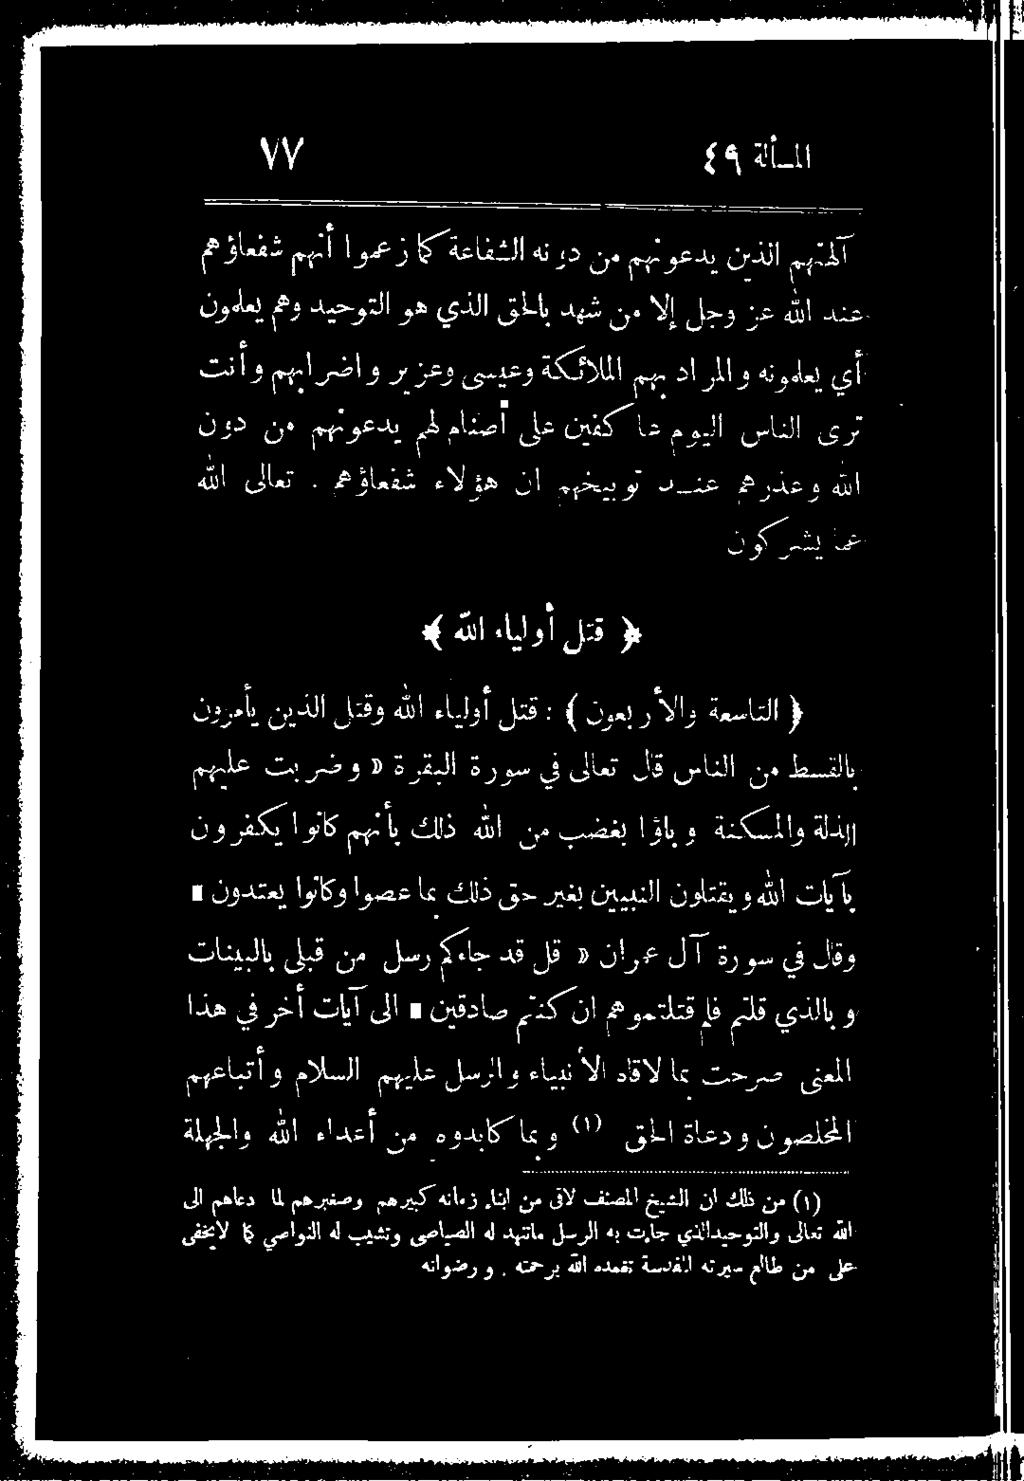 المسألة ٤٩ ٧٧
آلهتهم الذين يدعونهم من دونه الشفاعة كما زعموا أنهم شفعاؤهم
عند الله عز وجل إلا من شهد بالحق الذي هو التوحيد وهم يعلمون
أي يعلمونه والمراد بهم الملائكة وعيسى وعزير واضرابهم وأنت
ترى الناس اليوم عاكفين على أصنام لهم يدعونهم من دون
الله وعذرهم عند توبيخهم ان هؤلاء شفعاؤهم . تعالى الله
عما يشركون
﴿ قتل أولياء الله ﴾
﴿ التاسعة والأربعون ﴾ : قتل أولياء الله وقتل الذين يأمرون
بالقسط من الناس قال تعالى في سورة البقرة « وضربت عليهم
الذلة والمسكنة وباؤا بغضب من الله ذلك بأنهم كانوا يكفرون
بآيات الله ويقتلون النبيين بغير حق ذلك بما عصوا وكانوا يعتدون »
وقال في سورة آل عمران « قل قد جاءكم رسل من قبلى بالبينات
وبالذي قلتم فلم قتلتموهم ان كنتم صادقين » الى آيات أخر في هذا
المعنى صرحت بما لاقاه الأنبياء والرسل عليهم السلام وأتباعهم
المخلصون ودعاة الحق (١) وبما كابدوه من أعداء الله والجهلة
(١) من ذلك ان الشيخ المصنف لاقى من ابناء زمانه كبيرهم وصغيرهم لما دعاهم الى
الله تعالى والتوحيد الذي جاءت به الرسل ماتنهد له الصياصى وتشيب له النواصي كما لايخفى
على من طالع سيرته المقدسة تغمده الله برحمته . ورضوانه